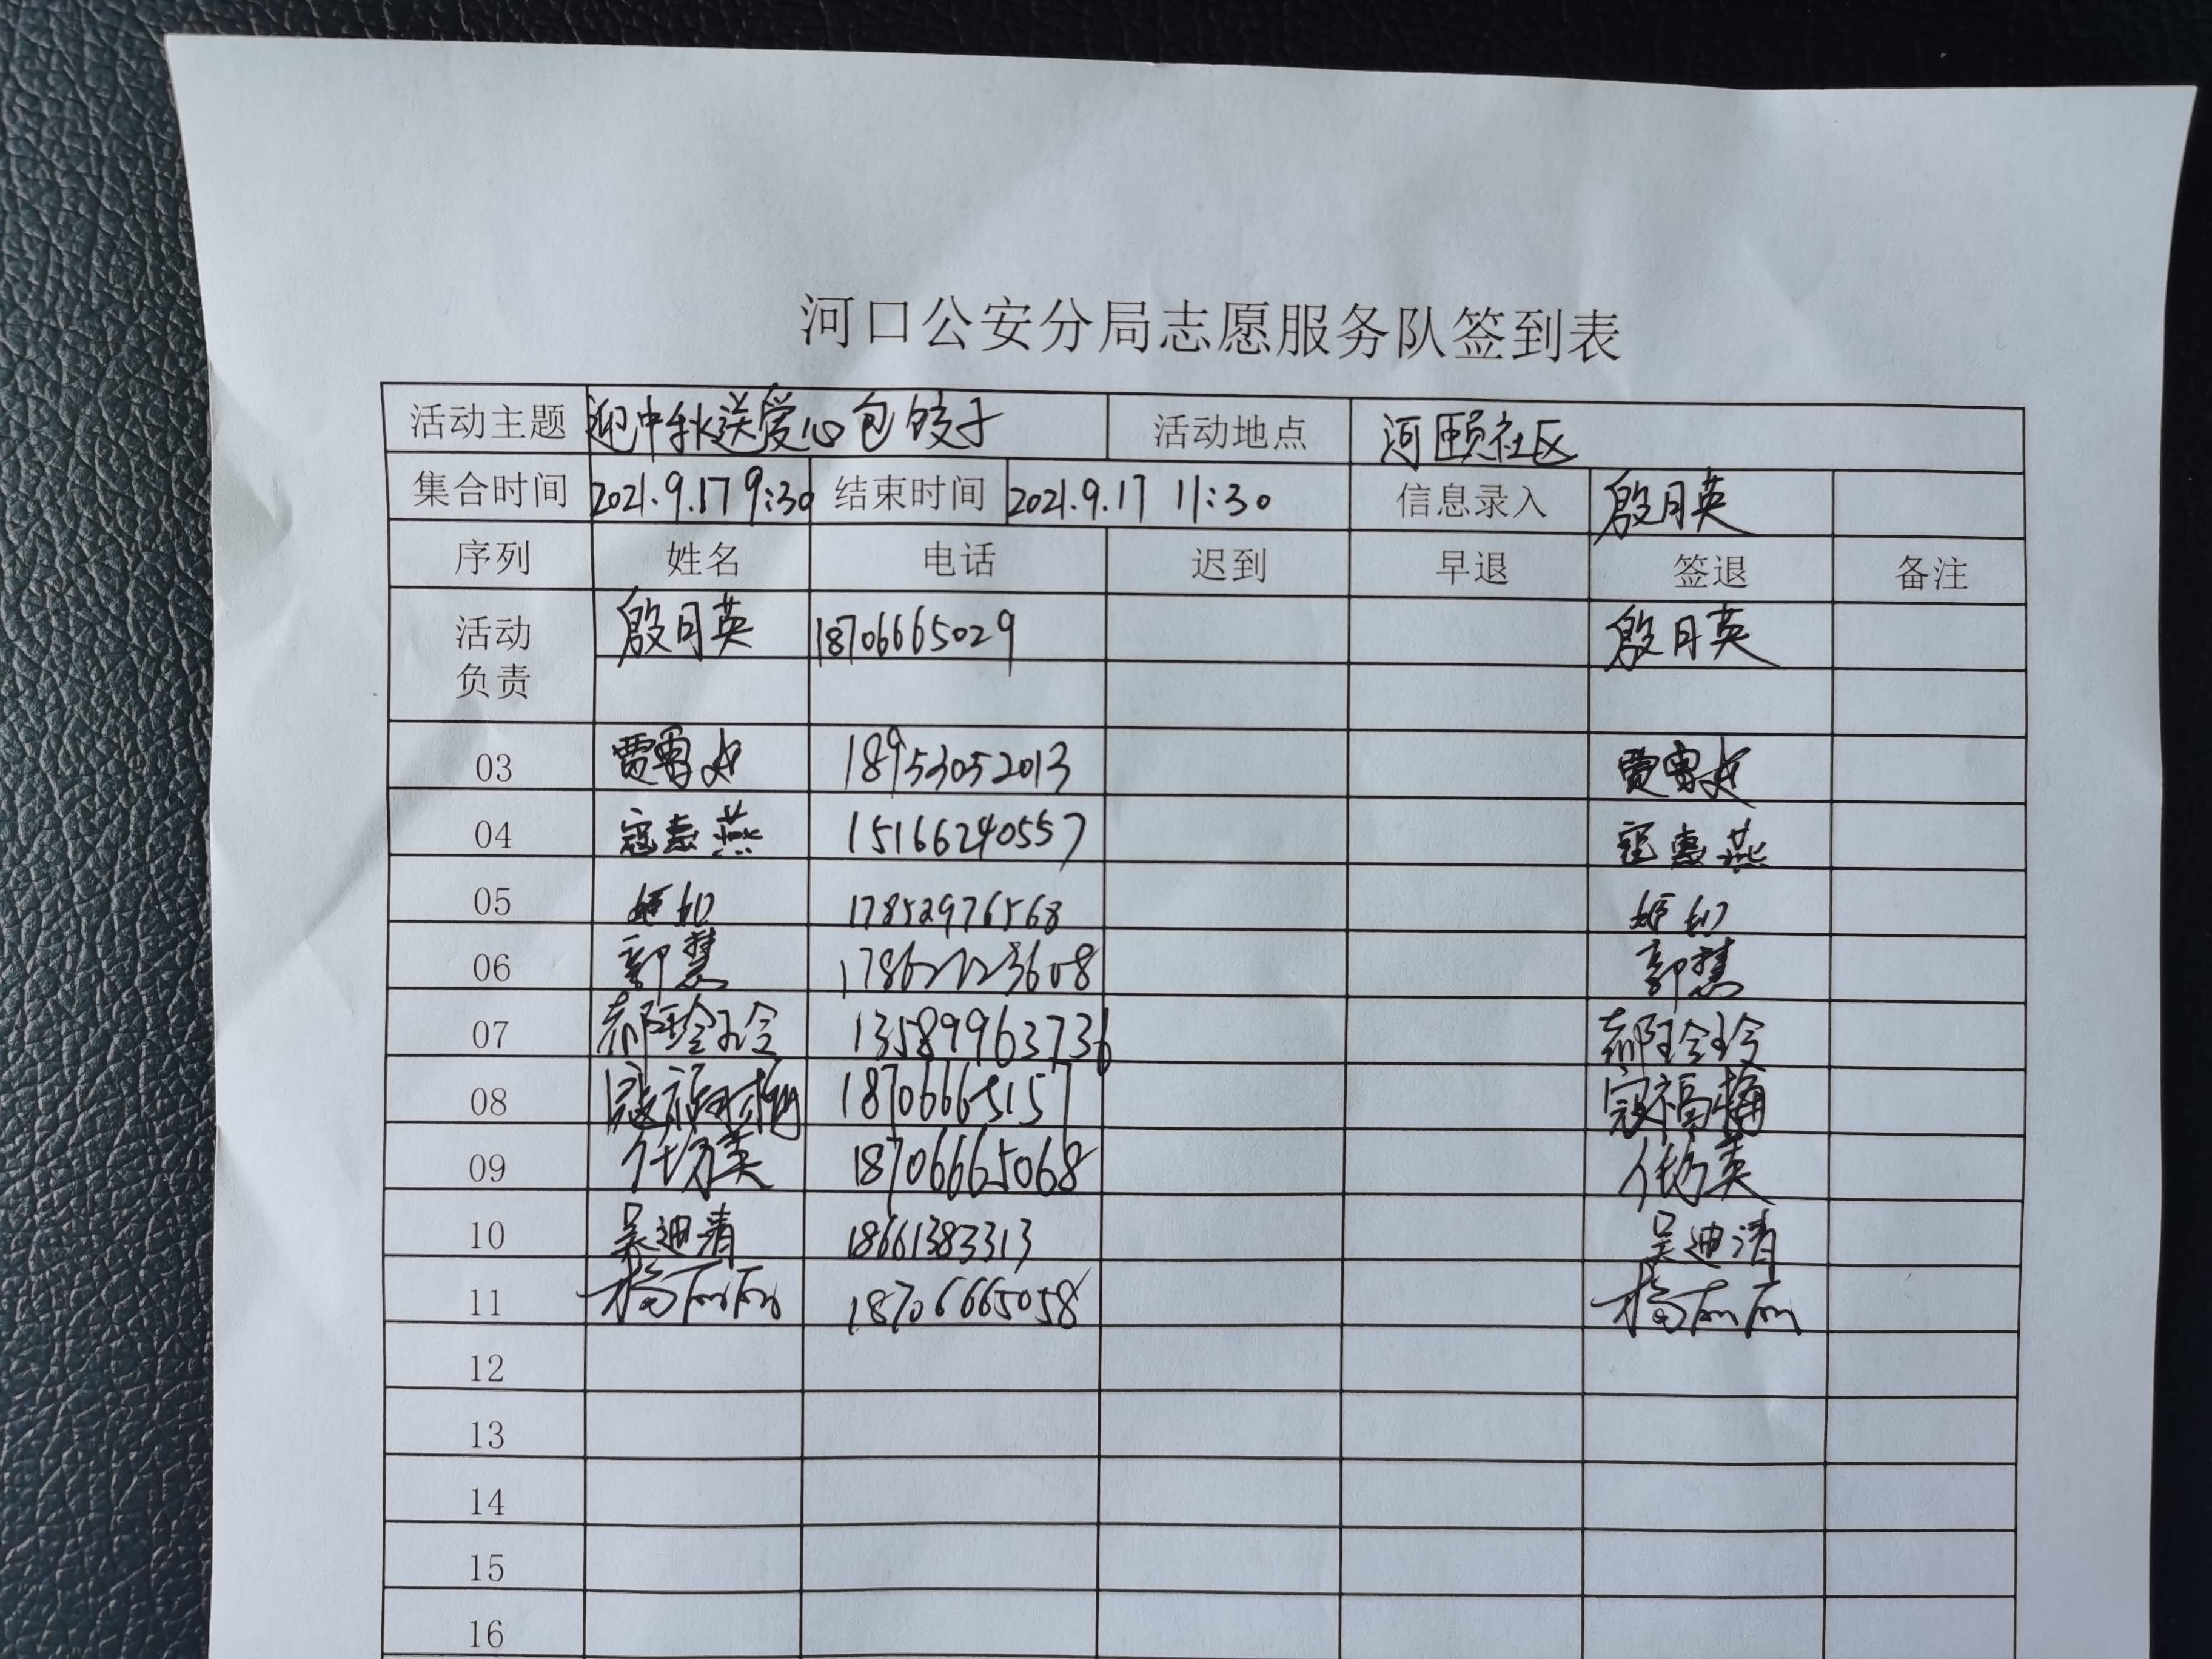 河口公安分局志愿服务队签到表
活动主题 迎中秋送爱心包饺子 活动地点 河颐社区
集合时间 2021.9.17 9:30 结束时间 2021.9.17 11:30 信息录入 殷月英
序列 姓名 电话 迟到 早退 签退 备注
活动负责 殷月英 18706665029 殷月英
03 贾 18953052013 贾
04 寇惠燕 15166240557 寇惠燕
05 17852976568
06 郭慧 17862123608 郭慧
07 郝玲玲 13589963736 郝玲玲
08 寇福梅 18706665157 寇福梅
09 任乃英 18706665068 任乃英
10 吴迪清 18661383313 吴迪清
11 杨丽丽 18706665058 杨丽丽
12
13
14
15
16